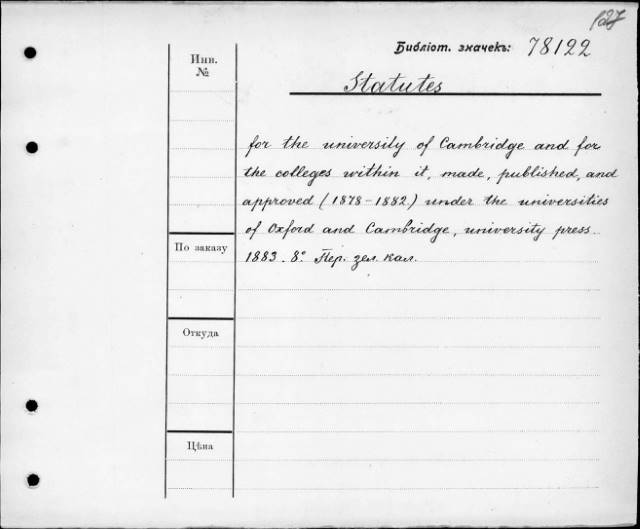 127
Библіот. значекъ: 78122
Инв.
№
Statutes
for the university of Cambridge and for
the colleges within it, made, published, and
approved (1878-1882) under the universities
of Oxford and Cambridge, university press.
1883. 8° Пер. зел. кал.
По заказу
Откуда
Цѣна